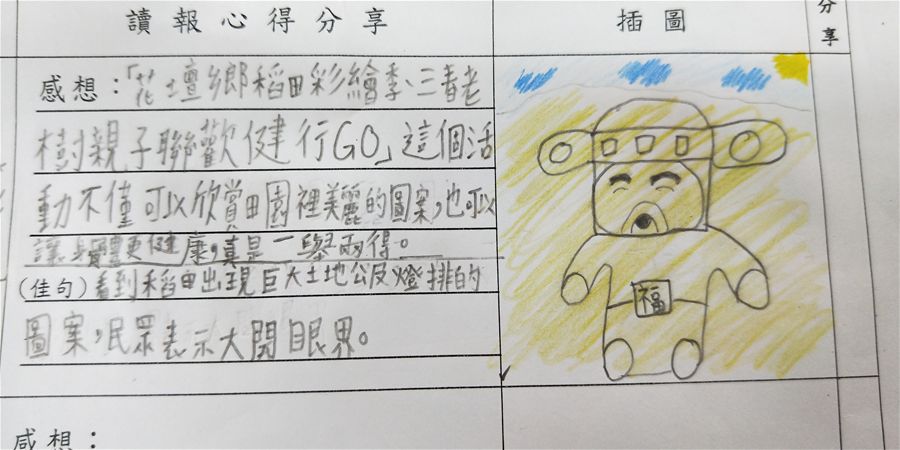 讀報心得分享
插圖
分享
感想：「花壇鄉稻田彩繪季、三春老
樹親子聯歡健行GO」這個活
動不僅可以欣賞田園裡美麗的圖案，也可以
讓身體更健康，真是一舉兩得。
(佳句) 看到稻田出現巨大土地公及燈排的
圖案，民眾表示大開眼界。
福
感想：